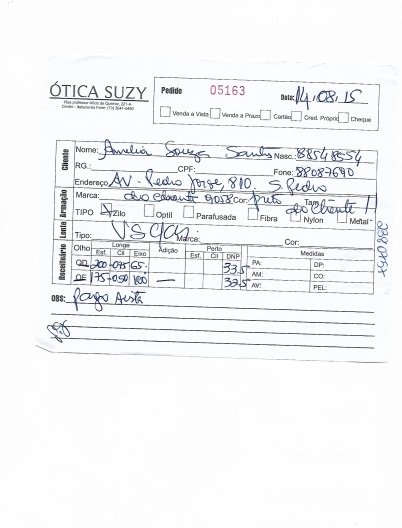 ÓTICA SUZY
Pedido 05163 Data: 14.08.15
Venda a Vista Venda a Prazo Cartão Cred. Próprio Cheque
Cliente
Nome: Amelia Souza Santos Nasc. 88548554
RG.: CPF: Fone: 88087690
Endereço AV. Pedro Jorge, 810. S. Pedro
Armação
Marca: do cliente 9058 Cor: preto Tam do cliente H
TIPO X Zilo Optil Parafusada Fibra Nylon Metal
Lente
Tipo: VS Marca: Cor:
Receituário
Olho Longe Adição Perto DNP Medidas
Esf. Cil Eixo Esf. Cil
OD 200 -075 65 33.5 PA: DP:
OE 175 -050 100 — 32.5 AM: CO:
AV: PEL:
OBS: pago